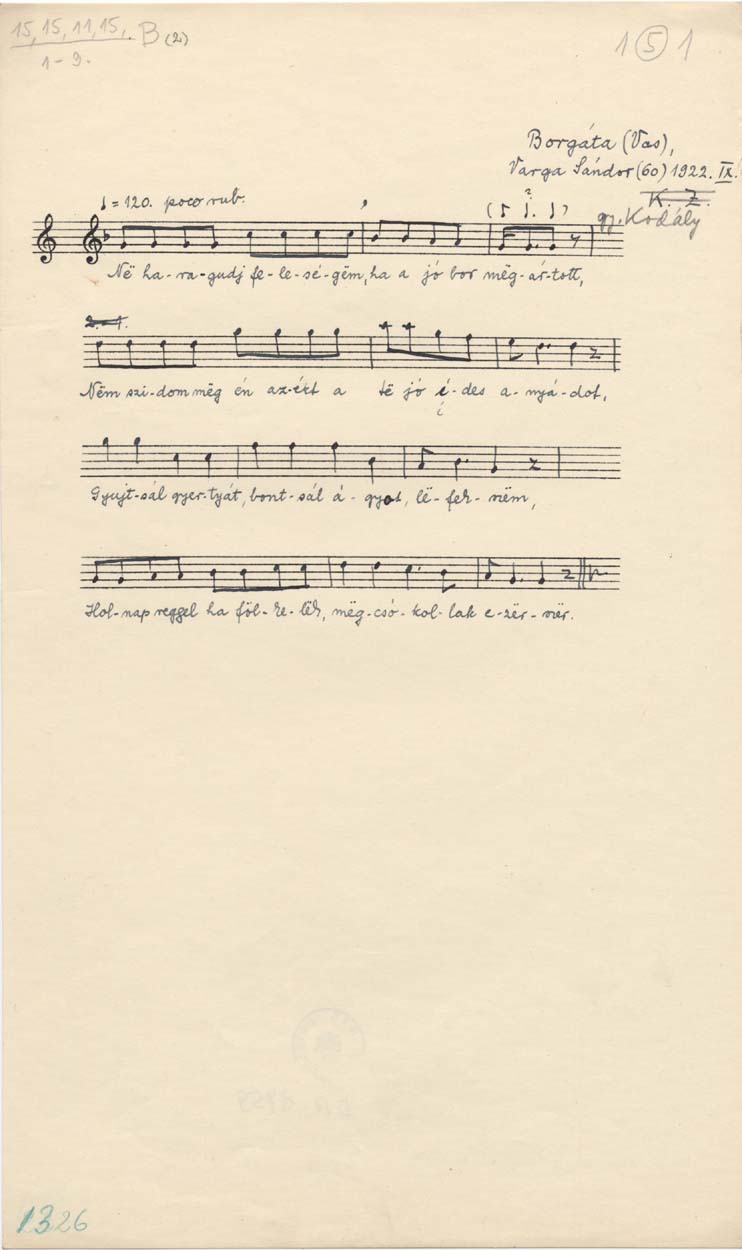 15, 15, 11, 15, B (2)
1-9.
1 5 1
Borgáta (Vas),
Varga Sándor (60) 1922. IX.
K. Z.
gy. Kodály
♩ = 120. poco rub.
Në ha-ra-gudj fe-le-sé-gëm, ha a jó bor mëg-ár-tott,
Nëm szi-dom mëg én az-ért a të jó é-des a-nyá-dot,
í
Gyujt-sál gyer-tyát, bont-sál á-gyat, lë-fek-wëm,
Hol-nap reggel ha föl-ke-lëk, mëg-csó-kol-lak e-zër-wër.
1326